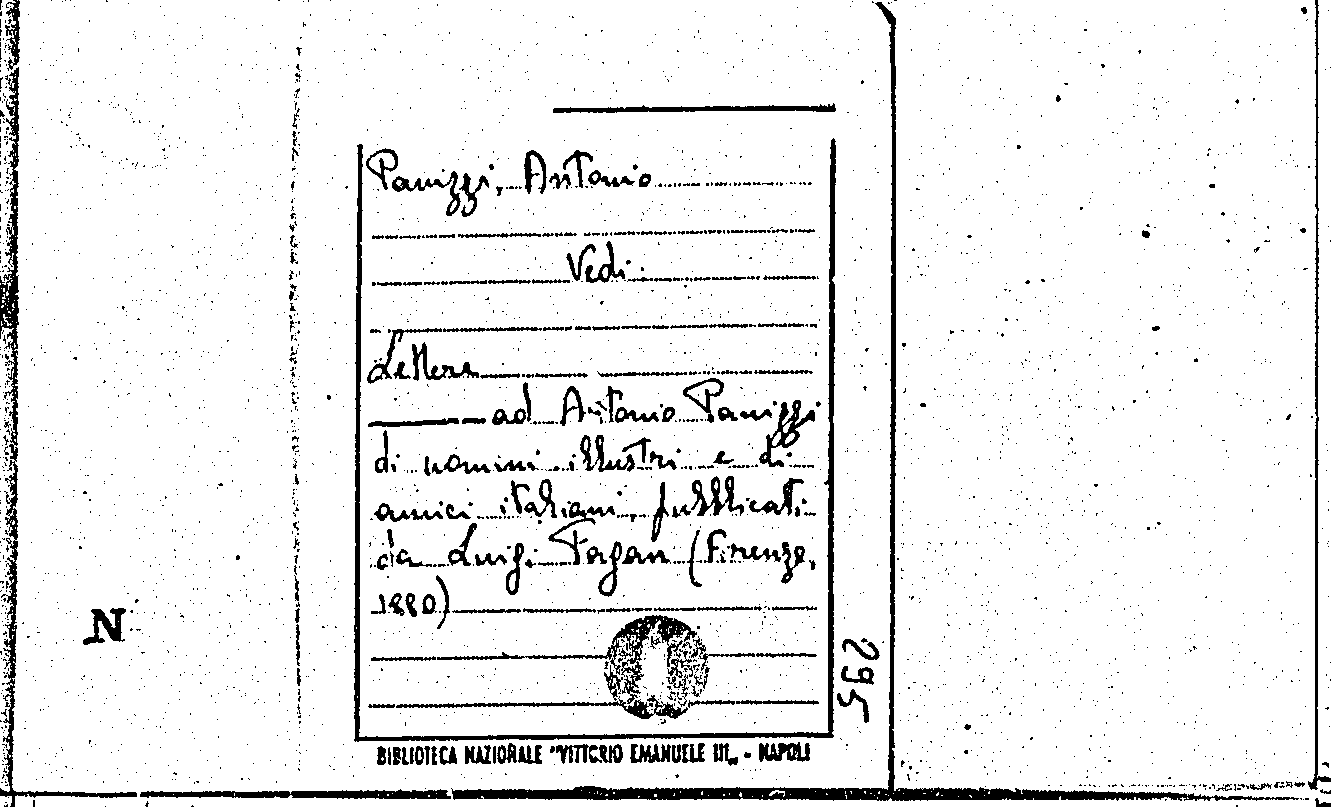 Panizzi, Antonio
Vedi:
Lettere
——— ad Antonio Panizzi
di uomini illustri e di
amici italiani, pubblicati
da Luigi Fagan (Firenze,
1880)
N
295
BIBLIOTECA NAZIONALE "VITTORIO EMANUELE III„ - NAPOLI